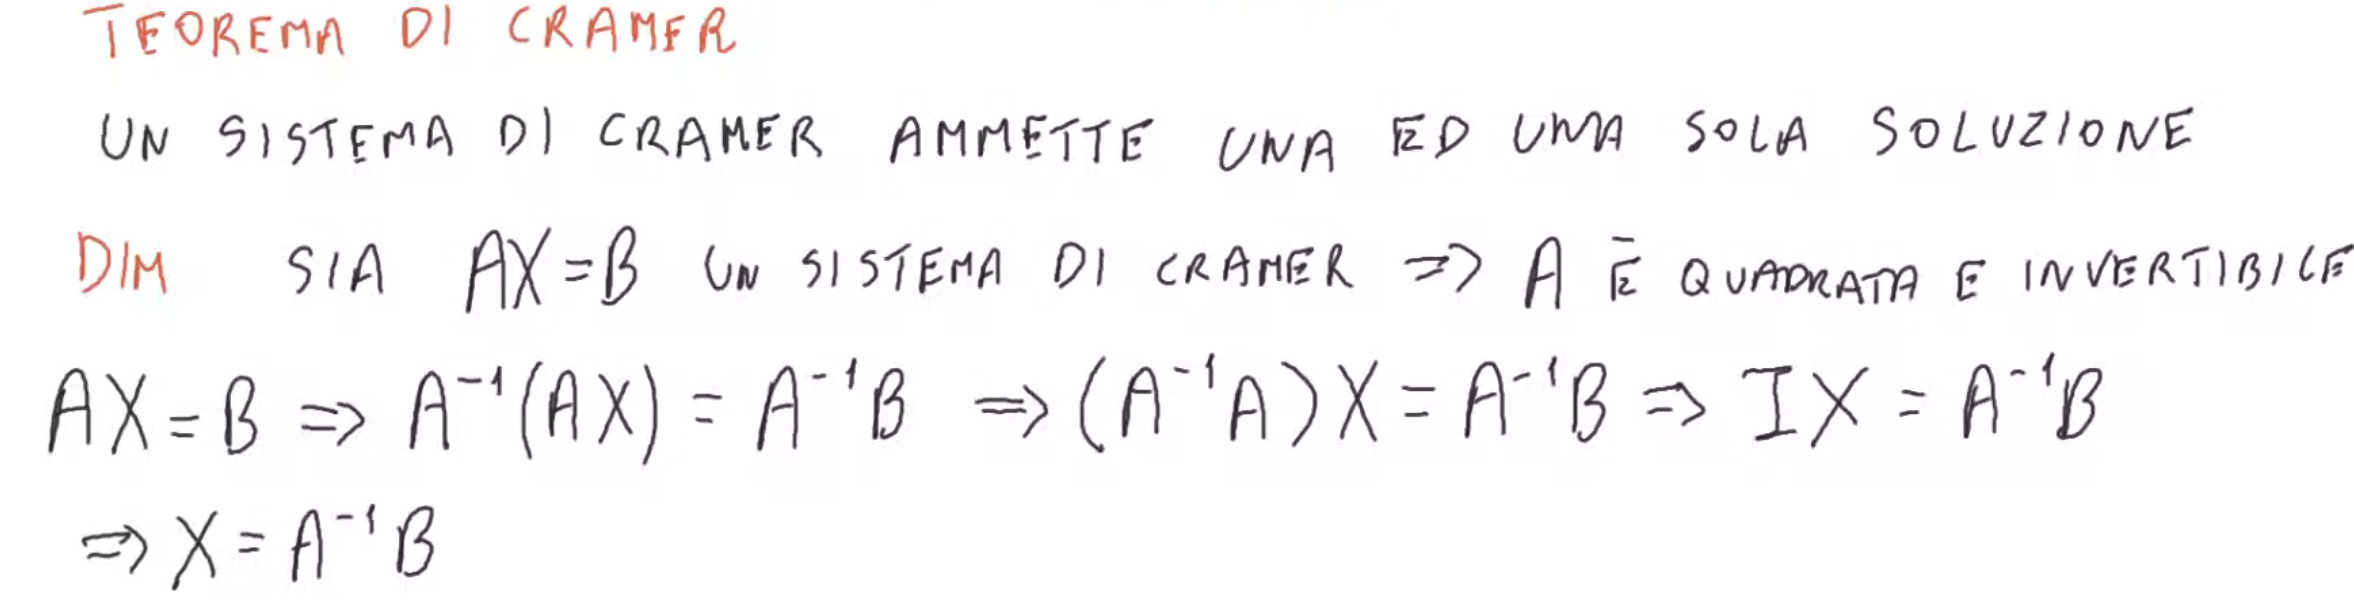 TEOREMA DI CRAMER
UN SISTEMA DI CRAMER AMMETTE UNA ED UNA SOLA SOLUZIONE
DIM SIA AX=B UN SISTEMA DI CRAMER => A È QUADRATA E INVERTIBILE
AX=B => A⁻¹(AX) = A⁻¹B => (A⁻¹A)X = A⁻¹B => IX = A⁻¹B
=> X = A⁻¹B